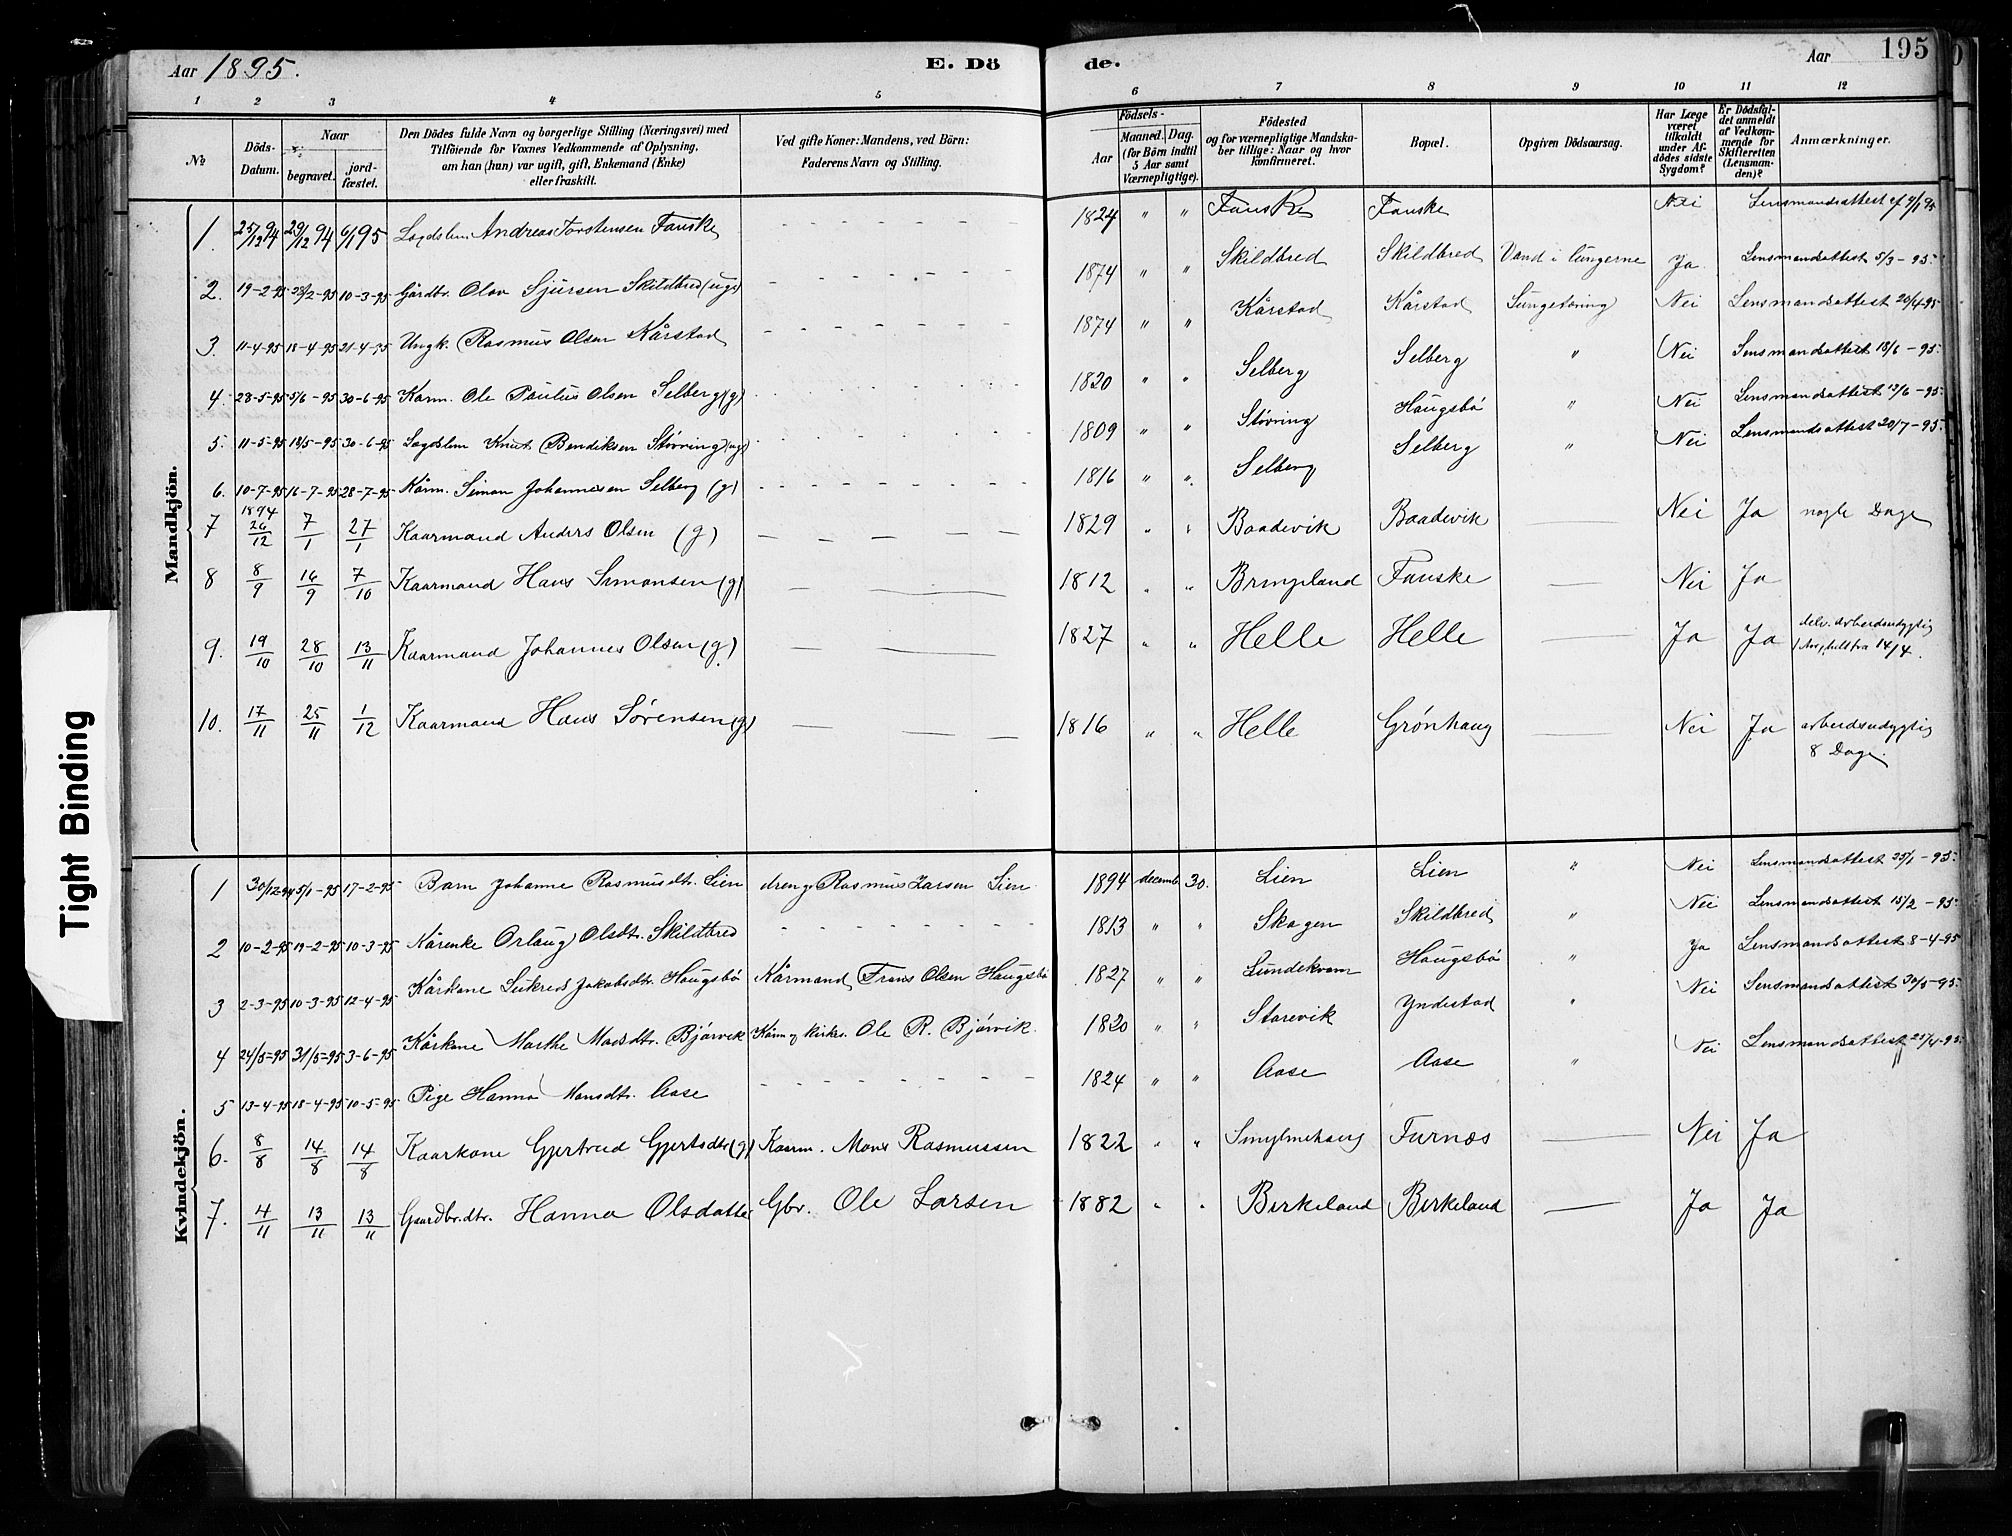 Aar 1895.
E. Dö
de.
Aar
195
1 2 3 4 5 6 7 8 9 10 11 12
No
Döds-Datum.
Naar
begravet.
jord-fæstet.
Den Dödes fulde Navn og borgerlige Stilling (Næringsvei) med
Tilföiende for Voxnes Vedkommende af Oplysning,
om han (hun) var ugift, gift, Enkemand (Enke)
eller fraskilt.
Ved gifte Koner: Mandens, ved Börn:
Faderens Navn og Stilling.
Födsels-
Aar
Maaned. Dag.
(for Börn indtil
5 Aar samt
Værnepligtige).
Födested
og for værnepligtige Mandska-
ber tillige: Naar og hvor
konfirmeret.
Bopæl.
Opgiven Dödsaarsag.
Har Læge
været
tilkaldt
under Af-
dödes sidste
Sygdom?
Er Dödsfal-
det anmeldt
af Vedkom-
mende for
Skifteretten
(Lensman-
den)?
Anmærkninger.
Mandkjön.
1. 25/12 94 29/12 94 6/1 95 Lægdslem Andreas Torstensen Fauske 1824 " " Fauske Fauske Nei Lensmandsattest af 9/1 95
2. 19-2-95 28/2-95 10-3-95 Gårdbr. Olav Sjursen Skildbred (ug) 1874 " " Skildbred Skildbred Vand i lungerne Ja Lensmandsattest 5/3-95
3. 11-4-95 18-4-95 21-4-95 Ungk. Rasmus Olsen Kårstad 1874 " " Kårstad Kårstad Lungetæring Nei Lensmandsattest 20/4-95
4. 28-5-95 5/6-95 30-6-95 Kårm. Ole Paulus Olsen Selberg (g) 1820 " " Selberg Selberg " Nei Lensmandsattest 18/6-95
5. 11-5-95 18/5-95 30-6-95 Lægdslem Knut Bendiksen Støvring (ug) 1809 " " Støvring Haugsbö " Nei Lensmandsattest 12/6-95
6. 10-7-95 16-7-95 28-7-95 Kårm. Simon Johannesen Selberg (g) 1816 " " Selberg Selberg " Nei Lensmandsattest 20/7-95
7 1894 26/12 7/1 27/1 Kaarmand Anders Olsen (g) 1829 " " Baadevik Baadevik Nei Ja nogle Dage
8 8/9 16/9 7/10 Kaarmand Hans Simonsen (g) 1812 " " Bringeland Fauske Nei Ja
9. 19/10 28/10 13/11 Kaarmand Johannes Olsen (g) 1827 " " Helle Helle Ja Ja delv. arbeidsudygtig
fra 14/4.
10. 17/11 25/11 1/12 Kaarmand Hans Sørensen (g) 1816 " " Helle Grønhaug Nei Ja arbeidsudygtig
8 Dage.
Kvindekjön.
1 30/12-94 5/1-95 17-2-95 Barn Johanne Rasmusdtr. Lien dreng Rasmus Larsen Lien 1894 decemb. 30. Lien Lien " Nei Lensmandsattest 25/1-95
2 10-2-95 19-2-95 10-3-95 Kårenke Orlaug Olsdtr. Skildbred 1813 " " Skagen Skildbred " Nei Lensmandsattest 15/2-95
3 2-3-95 10-3-95 12-4-95 Kårkone Jakobsdtr. Haugsbö Kårmand Frans Olsen Haugsbö 1827 " " Lundekvam Haugsbö " Ja Lensmandsattest 8-4-95
4 24/5-95 31/5-95 3-6-95 Kårkone Marthe Madsdtr. Bjørvik Kårm. og kirkes. Ole R. Bjørvik 1820 " " Starevik Yndestad " Nei Lensmandsattest 30/5-95
5 13-4-95 18-4-95 10-5-95 Pige Hanna Monsdtr. Aase 1824 " " Aase Aase " Nei Lensmandsattest 25/4-95
6. 8/8 14/8 14/8 Kaarkone Gjertrud Gjertsdtr (g) Kaarm. Mons Rasmussen 1822 " " Furnæs Nei Ja
7. 4/11 13/11 13/11 Gaardbr.dtr. Hanna Olsdatter Gbr. Ole Larsen 1882 " " Birkeland Birkeland Ja Ja
Tight Binding